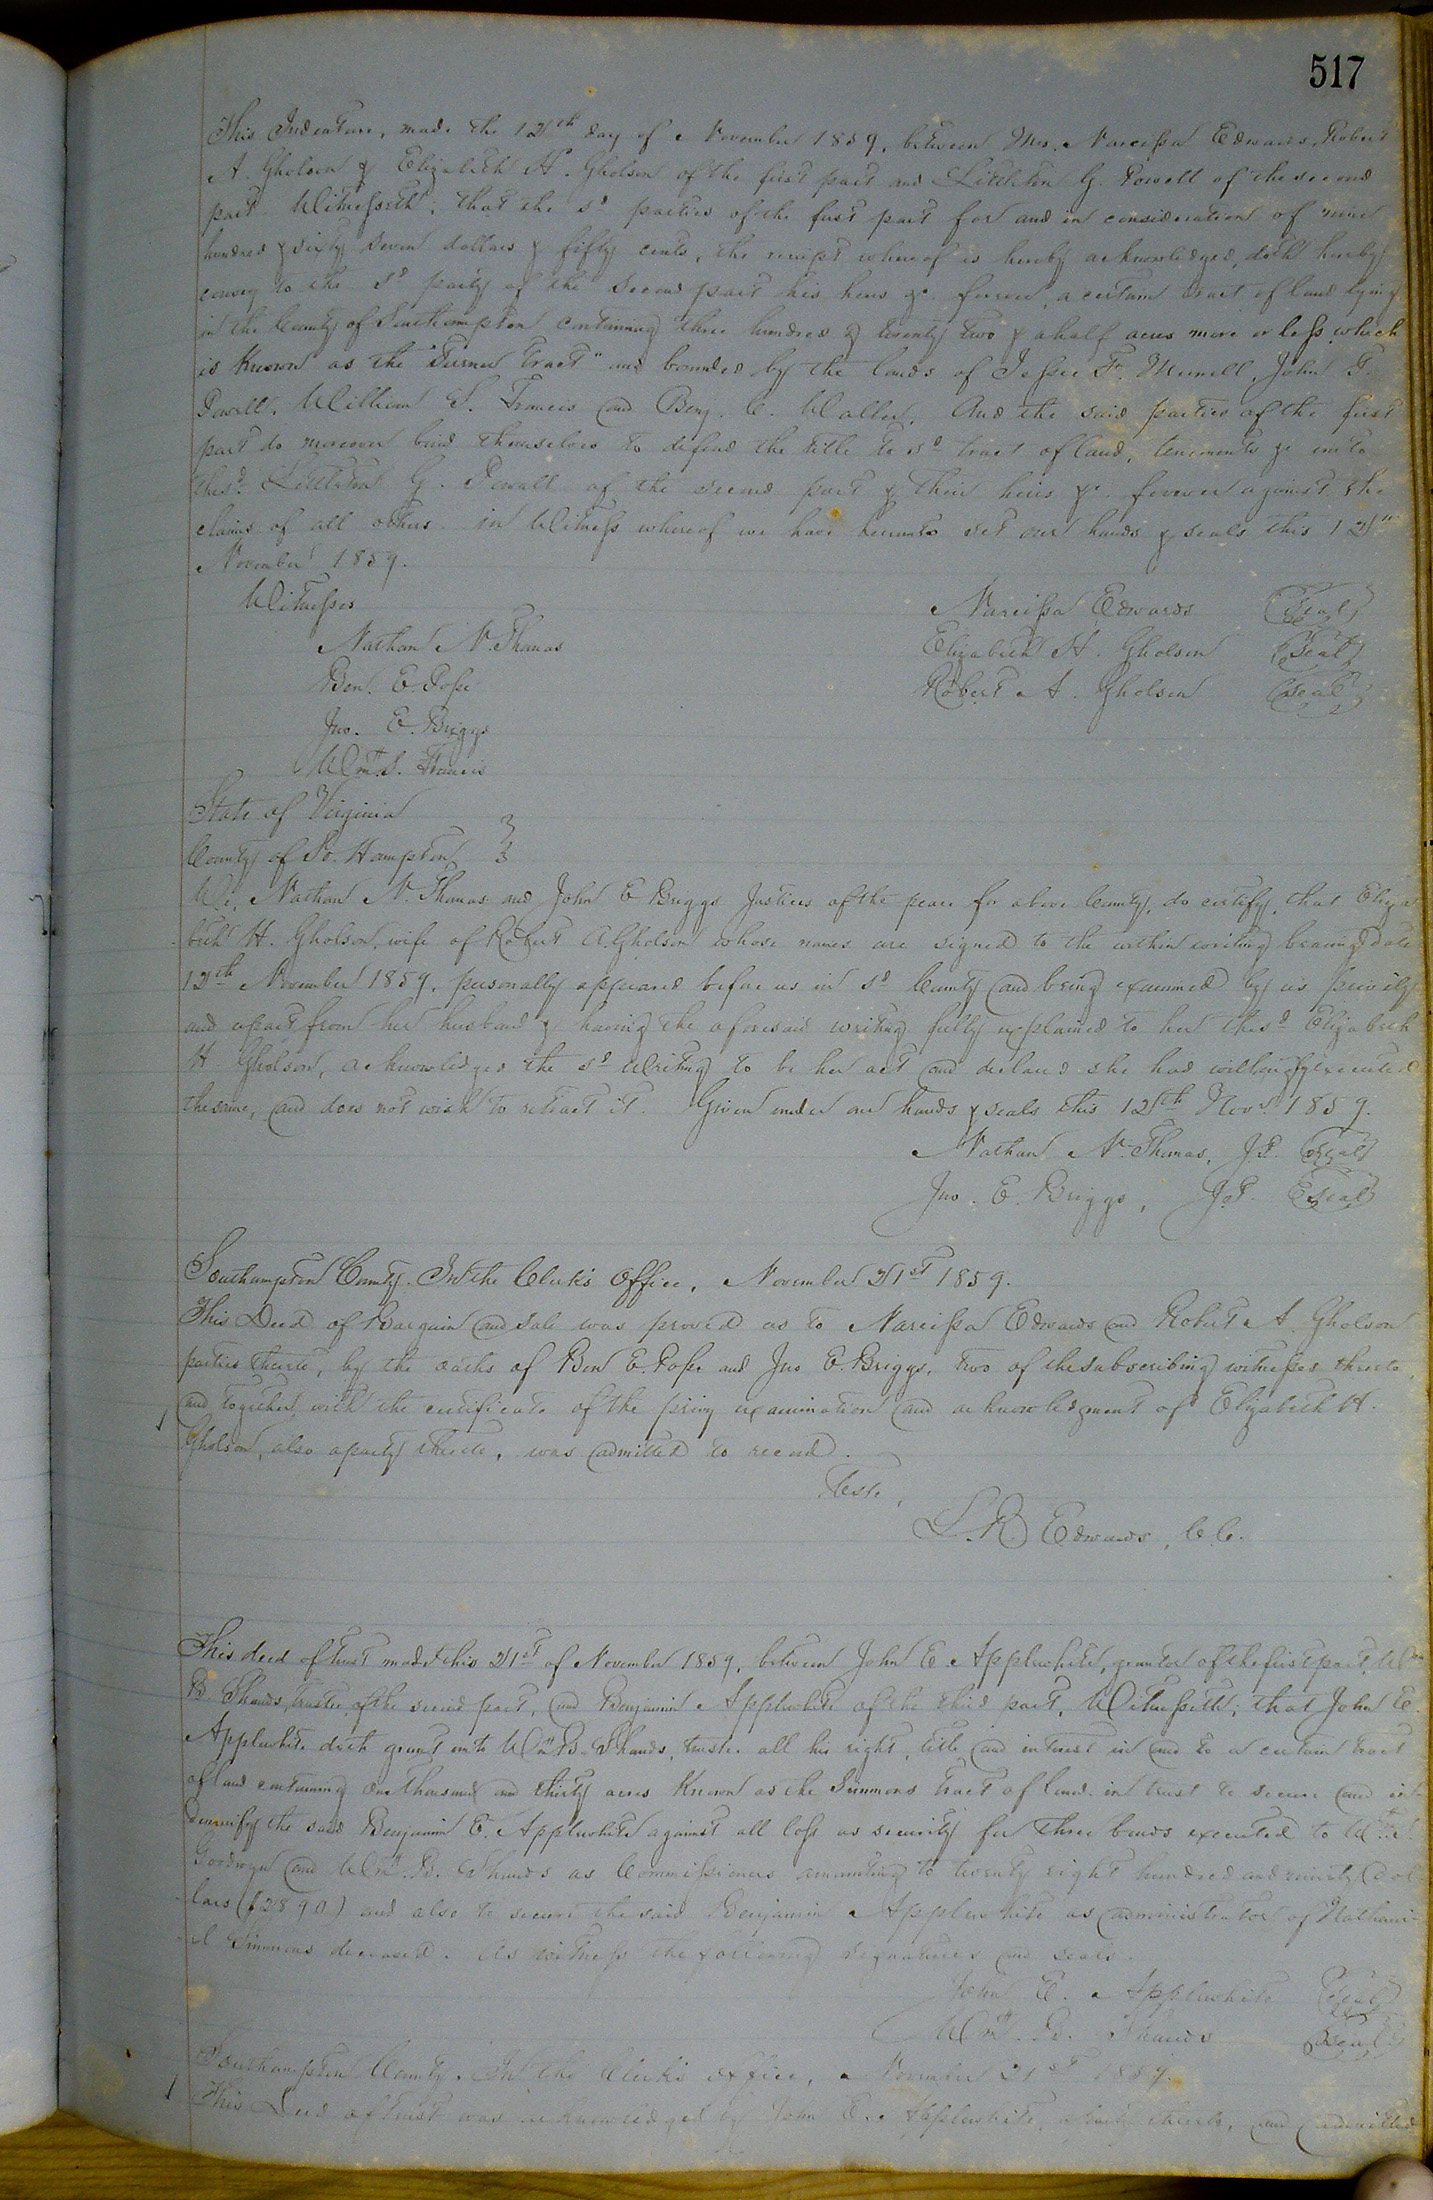 517
This Indenture, made the 12th day of November 1859, between Mrs. Narcissa Edwards, Robert
A. Gholson & Elizabeth H. Gholson of the first part and Littleton G. Powell of the second
part Witnesseth; that the sd parties of the first part for and in consideration of nine
hundred & sixty seven dollars & fifty cents, the receipt whereof is hereby acknowledged, doth hereby
convey to the sd party of the second part his heirs &c forever, a certain tract of land lying
in the County of Southampton containing three hundred & twenty two & a half acres more or less which
is known as the "Turner tract" and bounded by the lands of Jessee F. Murrell, John T.
Powell, William S. Francis and Benj. C. Waller. And the said parties of the first
part do moreover bind themselves to defend the title to sd tract of land, tenements &c unto
the sd Littleton G. Powell of the second part & their heirs &c forever against the
claims of all others. in Witness whereof we have hereunto set our hands & seals this 12"
November 1859.
Witnesses
Narcissa Edwards Seal
Nathan N. Thomas
Elizabeth H. Gholson Seal
Ben. E. Pope
Robert A. Gholson Seal
Jno. E. Briggs
Wm. S. Francis
State of Virginia
County of So. Hampton
We, Nathan N. Thomas and John E Briggs Justices of the peace for above County, do certify, that Eliza
beth H. Gholson, wife of Robert A. Gholson whose names are signed to the within writing bearing date
12th November 1859, personally appeared before us in sd County and being examined by us privily
and apart from her husband & having the aforesaid writing fully explained to her the sd Elizabeth
H. Gholson, acknowledged the sd Writing to be her act and declared she had willingly executed
the same, and does not wish to retract it. Given under our hands & seals this 12th Novr 1859.
Nathan N. Thomas, J.P. Seal
Jno. E. Briggs, J.P. Seal
Southampton County. In the Clerk's Office, November 21st 1859.
This Deed of Bargain and sale was proved as to Narcissa Edwards and Robert A. Gholson
parties thereto, by the oaths of Ben E. Pope and Jno E. Briggs, two of the subscribing witnesses thereto,
and together with the certificate of the privy examination and acknowledgment of Elizabeth H.
Gholson, also a party thereto, was admitted to record.
Teste,
L. R. Edwards, C.C.
This deed of trust made this 21st of November 1859, between John E. Applewhite, grantor of the first part, Wm
B. Shands, trustee, of the second part, and Benjamin Applewhite of the third part, Witnesseth; that John E.
Applewhite doth grant unto Wm B. Shands, trustee all his right, title and interest in and to a certain tract
of land containing One thousand and thirty acres Known as the Simmons tract of land in trust to secure and in
demnify the said Benjamin E. Applewhite against all loss as security for three bonds executed to
Goodwyn and Wm. B. Shands as Commissioners amounting to twenty eight hundred and ninety dol
lars ($2890) and also to secure the said Benjamin Applewhite as administrator of Nathani
el Simmons deceased. As witness the following signatures and seals.
John E. Applewhite Seal
Wm. B. Shands Seal
Southampton County. In the Clerk's office, November 21st 1859.
This Deed of trust was acknowledged by John E. Applewhite, a party thereto, and admitted